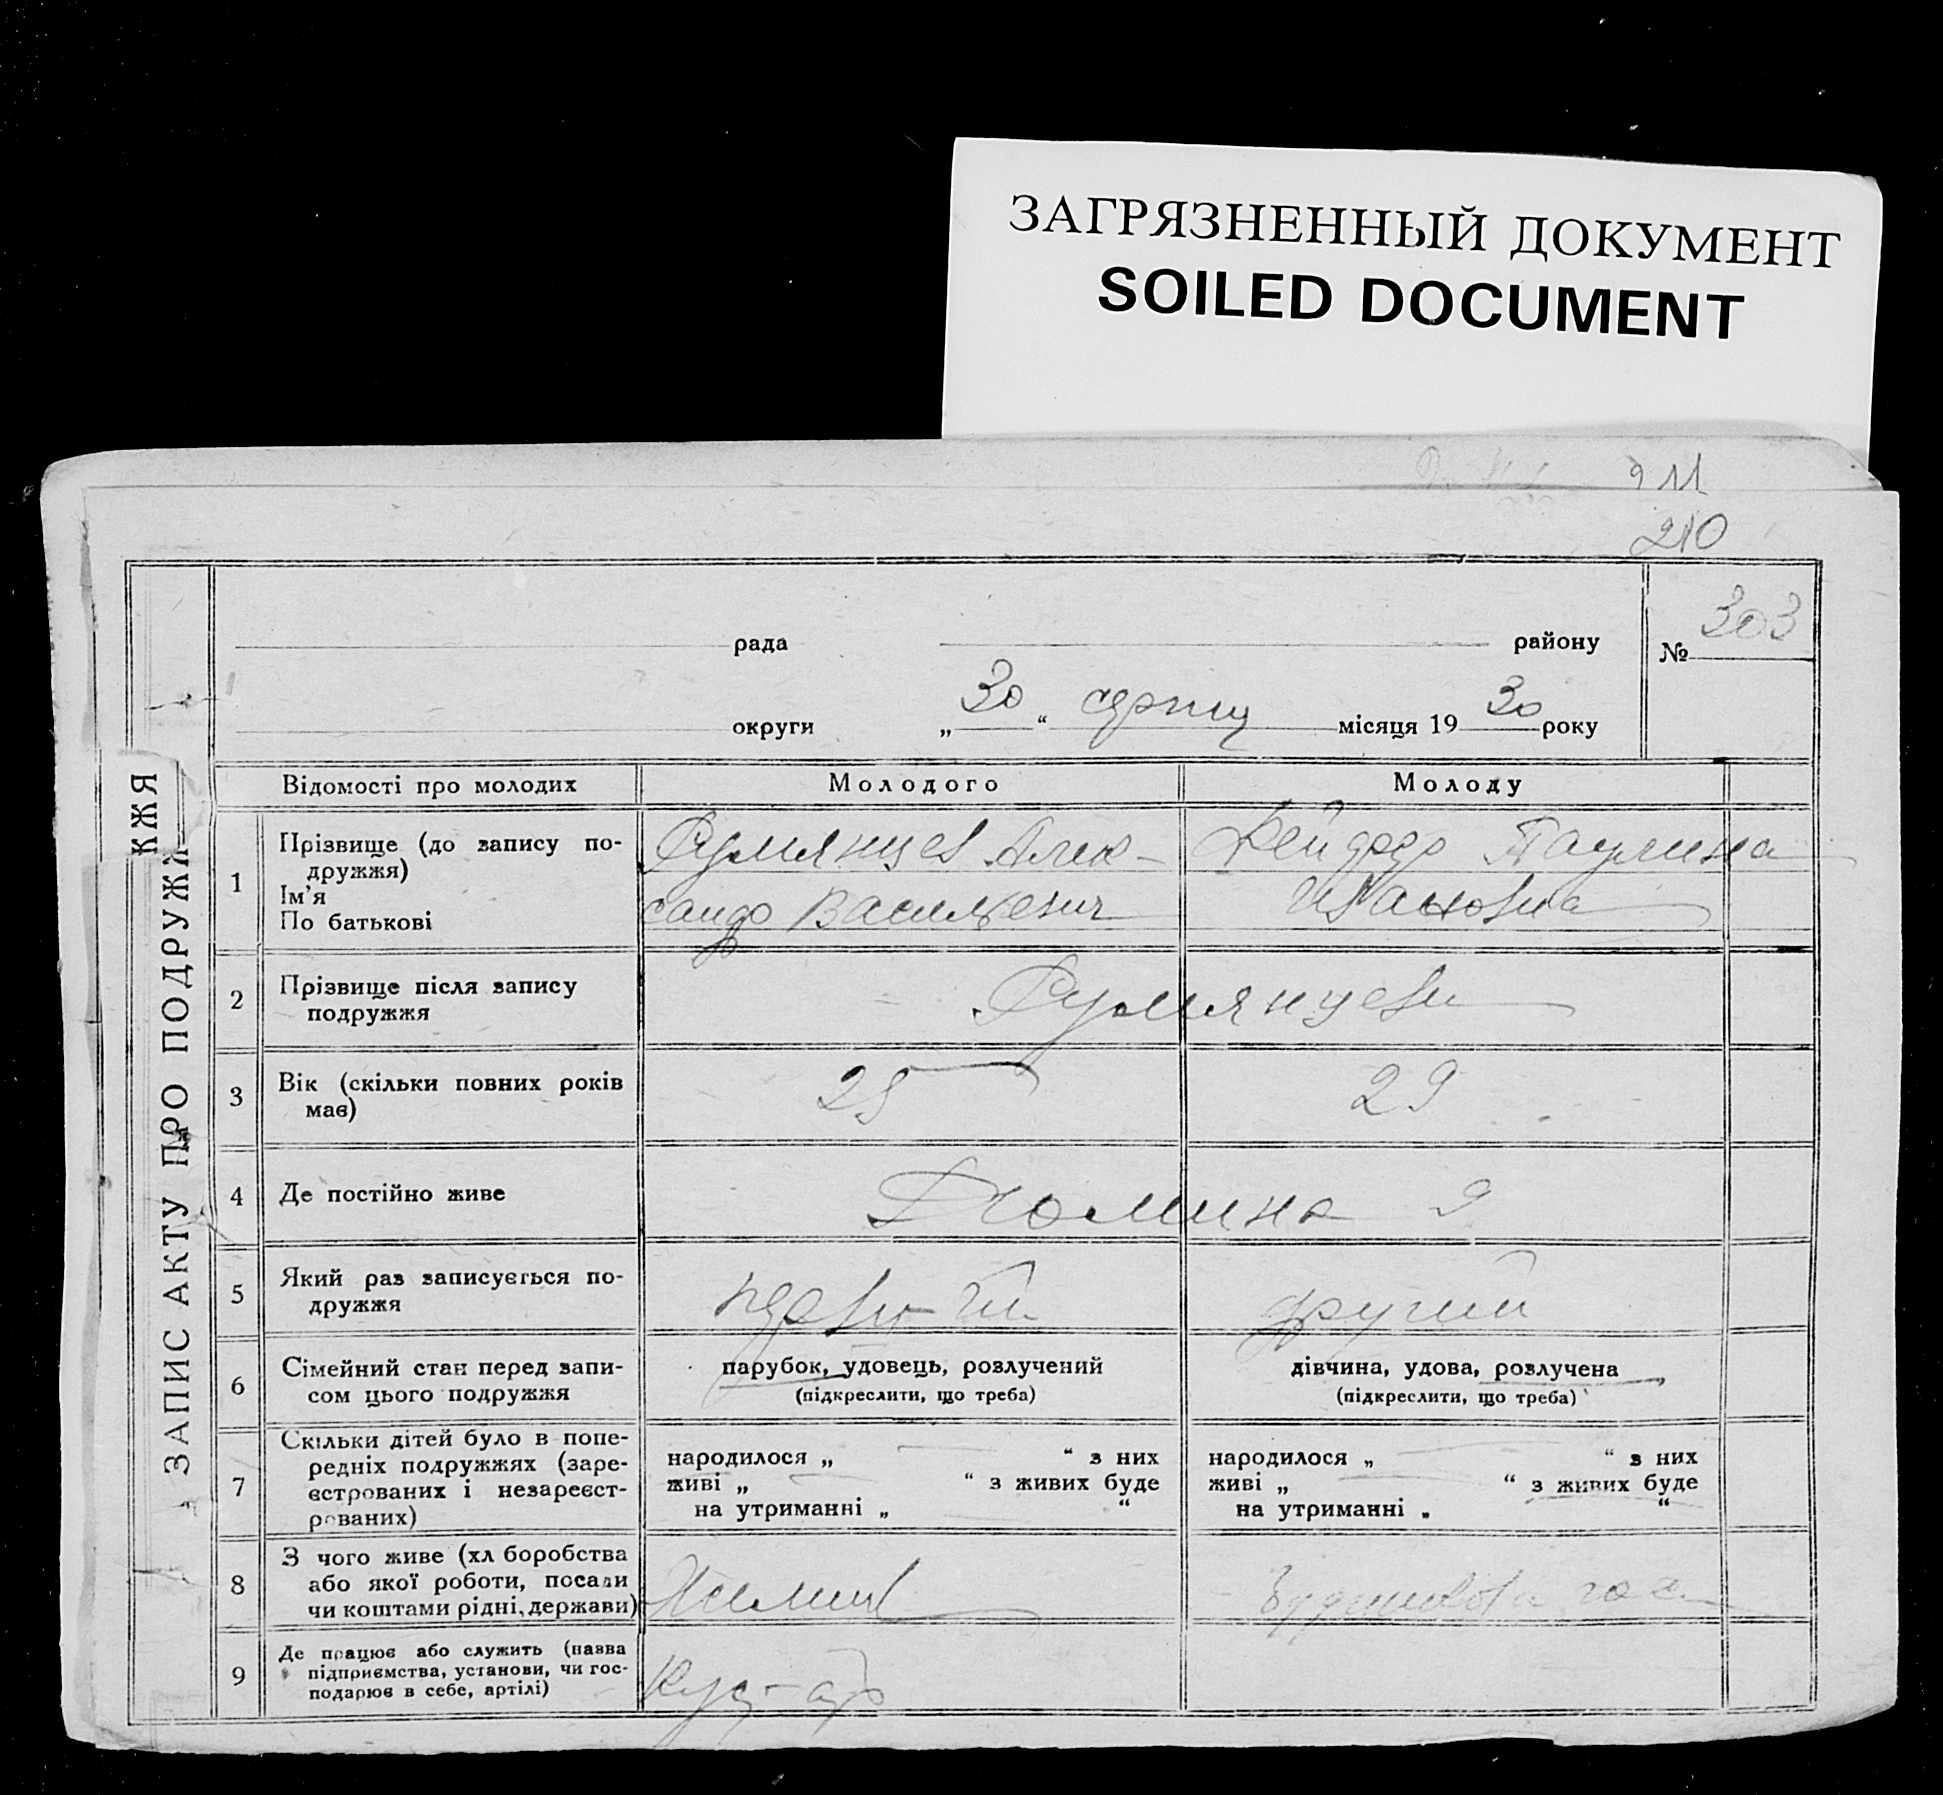 ЗАГРЯЗНЕННЫЙ ДОКУМЕНТ
SOILED DOCUMENT
211
210
рада району № 303
округи „30“ серпня місяця 1930 року
ЗАПИС АКТУ ПРО ПОДРУЖЖЯ
КЖЯ
Відомості про молодих Молодого Молоду
1 Прізвище (до запису по-
дружжя)
Ім'я
По батькові
Румянцев Алек-
сандр Васильевич
Паулина
Ивановна
2 Прізвище після запису
подружжя
Румянцеви
3 Вік (скільки повних років
має)
25 29
4 Де постійно живе
Дюмина 9
5 Який раз записується по-
дружжя
другий
6 Сімейний стан перед запи-
сом цього подружжя
парубок, удовець, розлучений
(підкреслити, що треба)
дівчина, удова, розлучена
(підкреслити, що треба)
7 Скільки дітей було в попе-
редніх подружжях (заре-
єстрованих і незареєст-
рованих)
народилося „ “ з них
живі „ “ з живих буде
на утриманні „ “
народилося „ “ з них
живі „ “ з живих буде
на утриманні „ “
8 З чого живе (хліборобства
або якої роботи, посади
чи коштами рідні, держави)
9 Де працює або служить (назва
підприємства, установи, чи гос-
подарює в себе, артілі)